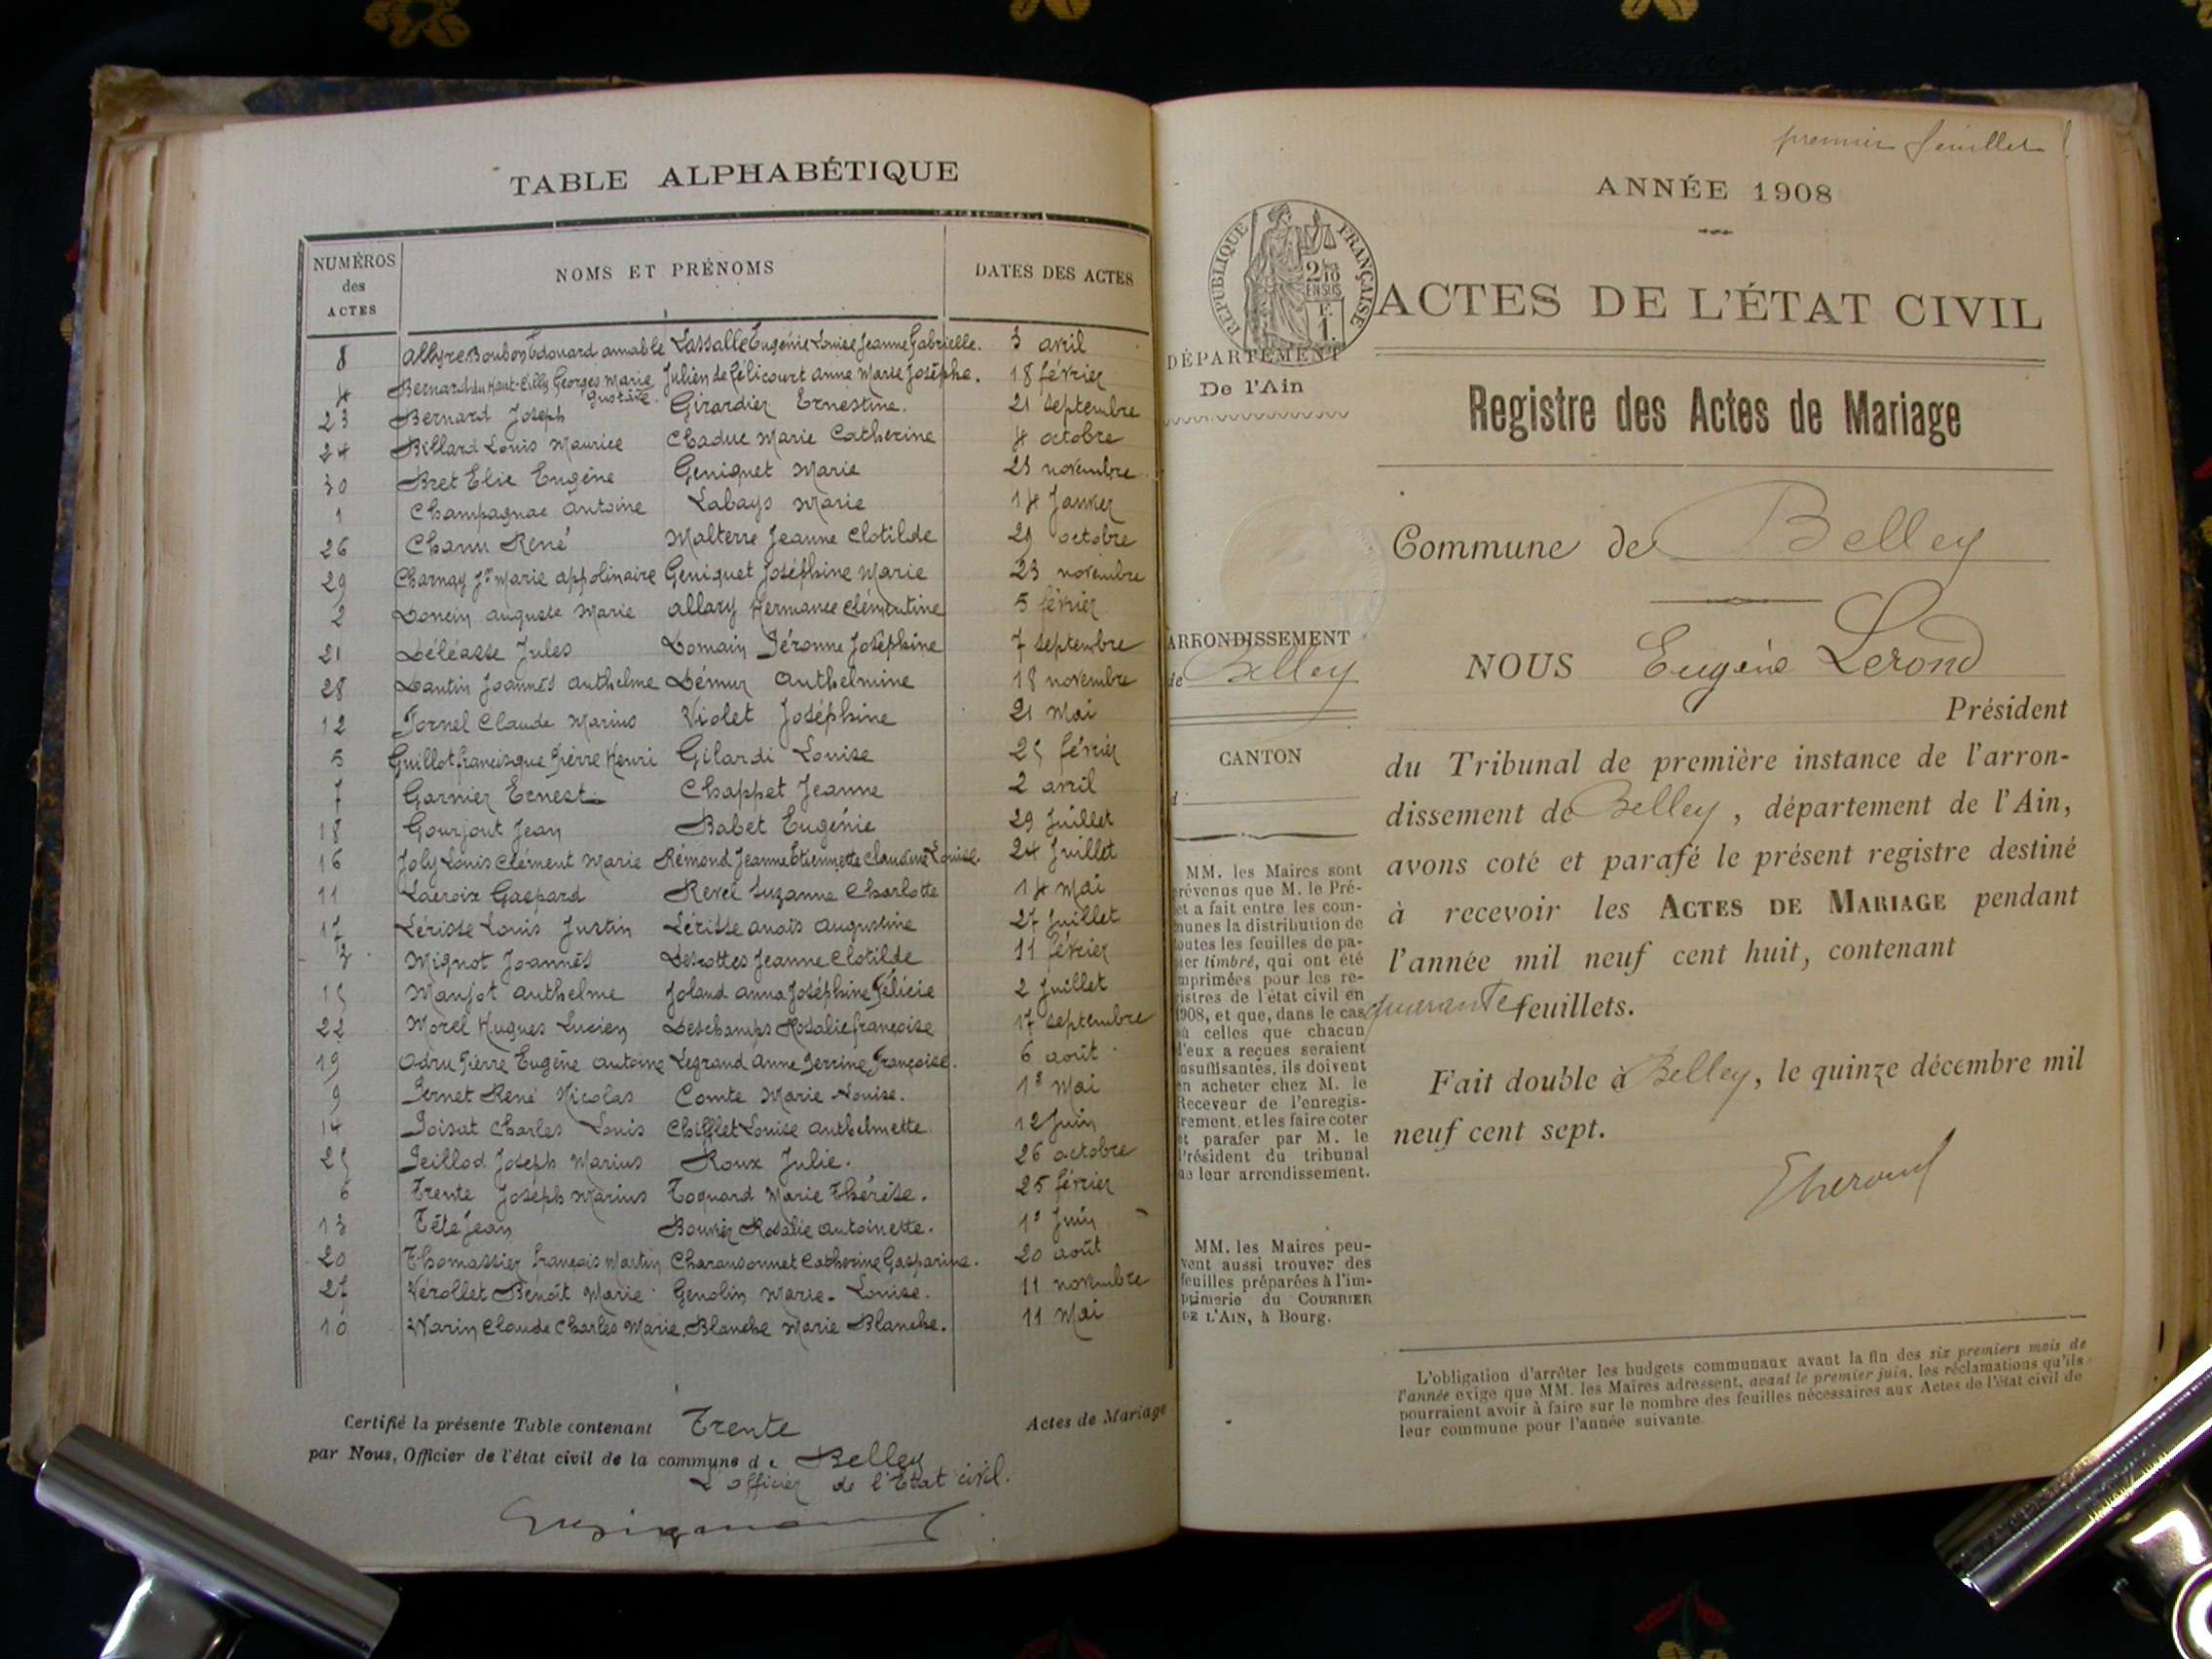 TABLE ALPHABÉTIQUE
NUMÉROS des ACTES
NOMS ET PRÉNOMS
DATES DES ACTES
8 Lassalle Eugénie Louise Jeanne Gabrielle. 3 avril
4 Bernard du Haut-Cilly Georges Marie Gustave. Julien de Anne Marie Josèphe. 18 février
23 Bernard Joseph Girardier Ernestine. 21 septembre
24 Billard Louis Maurice Chaduc Marie Catherine 4 octobre
30 Bret Elie Eugène Geniquet Marie 23 novembre
1 Champagnac Antoine Labays Marie 14 Janvier
26 Chanu René Malterre Jeanne Clotilde 29 octobre
29 Charnay Jn Marie Appolinaire Geniquet Joséphine Marie 23 novembre
2 Doncin Auguste Marie Allary Hermance Clémentine 5 février
21 Déléasse Jules Domain Péronne Joséphine 7 septembre
28 Dantin Joannès Anthelme Démur Anthelmine 18 novembre
12 Fornel Claude Marius Violet Joséphine 21 Mai
5 Guillot francisque Pierre Henri Gilardi Louise 25 février
7 Garnier Ernest. Chappet Jeanne 2 avril
18 Gourjout Jean Babet Eugénie 29 Juillet
16 Joly Louis Clément Marie Rémond Jeanne Etiennette Claudine Louise. 24 Juillet
11 Lacroix Gaspard Revel Suzanne Charlotte 14 Mai
17 Lérisse Louis Justin Lérisse Anaïs Augustine 27 Juillet
3 Mignot Joannès Descottes Jeanne Clotilde 11 février
15 Manjot Anthelme Joland Anna Joséphine Félicie 2 Juillet
22 Morel Hugues Lucien Deschamps Rosalie françoise 17 septembre
19 Odru Pierre Eugène Antoine Legrand Anne Perrine Françoise. 6 août
9 Pernet René Nicolas Comte Marie Louise. 1er Mai
14 Poisat Charles Louis Chifflet Louise Anthelmette. 12 Juin
25 Peillod Joseph Marius Roux Julie. 26 octobre
6 Trente Joseph Marius Toquard Marie Thérèse. 25 février
13 Tête Jean Bouvier Rosalie Antoinette. 1er Juin
20 Thomassier François Martin Charansonnet Catherine Gasparine. 20 août
27 Vérollet Benoît Marie Genolin Marie-Louise. 11 novembre
10 Warin Claude Charles Marie. Blanche Marie Blanche. 11 Mai
Certifié la présente Table contenant Trente Actes de Mariage
par Nous, Officier de l'état civil de la commune de Belley
L'officier de l'Etat civil.
premier feuillet
ANNÉE 1908
RÉPUBLIQUE FRANÇAISE
2/10
EN SUS
F.
1.
ACTES DE L'ÉTAT CIVIL
DÉPARTEMENT
De l'Ain
Registre des Actes de Mariage
Commune de Belley
ARRONDISSEMENT
de Belley
NOUS Eugène Lerond
Président
CANTON
d
du Tribunal de première instance de l'arron-
dissement de Belley, département de l'Ain,
avons coté et parafé le présent registre destiné
à recevoir les ACTES DE MARIAGE pendant
l'année mil neuf cent huit, contenant
quarante feuillets.
Fait double à Belley, le quinze décembre mil
neuf cent sept.
MM. les Maires sont
prévenus que M. le Pré-
fet a fait entre les com-
munes la distribution de
toutes les feuilles de pa-
pier timbré, qui ont été
imprimées pour les re-
gistres de l'état civil en
1908, et que, dans le cas
où celles que chacun
d'eux a reçues seraient
insuffisantes, ils doivent
en acheter chez M. le
Receveur de l'enregis-
trement, et les faire coter
et parafer par M. le
Président du tribunal
de leur arrondissement.
MM. les Maires peu-
vent aussi trouver des
feuilles préparées à l'im-
primerie du COURRIER
DE L'AIN, à Bourg.
L'obligation d'arrêter les budgets communaux avant la fin des six premiers mois de
l'année exige que MM. les Maires adressent, avant le premier juin, les réclamations qu'ils
pourraient avoir à faire sur le nombre des feuilles nécessaires aux Actes de l'état civil de
leur commune pour l'année suivante.